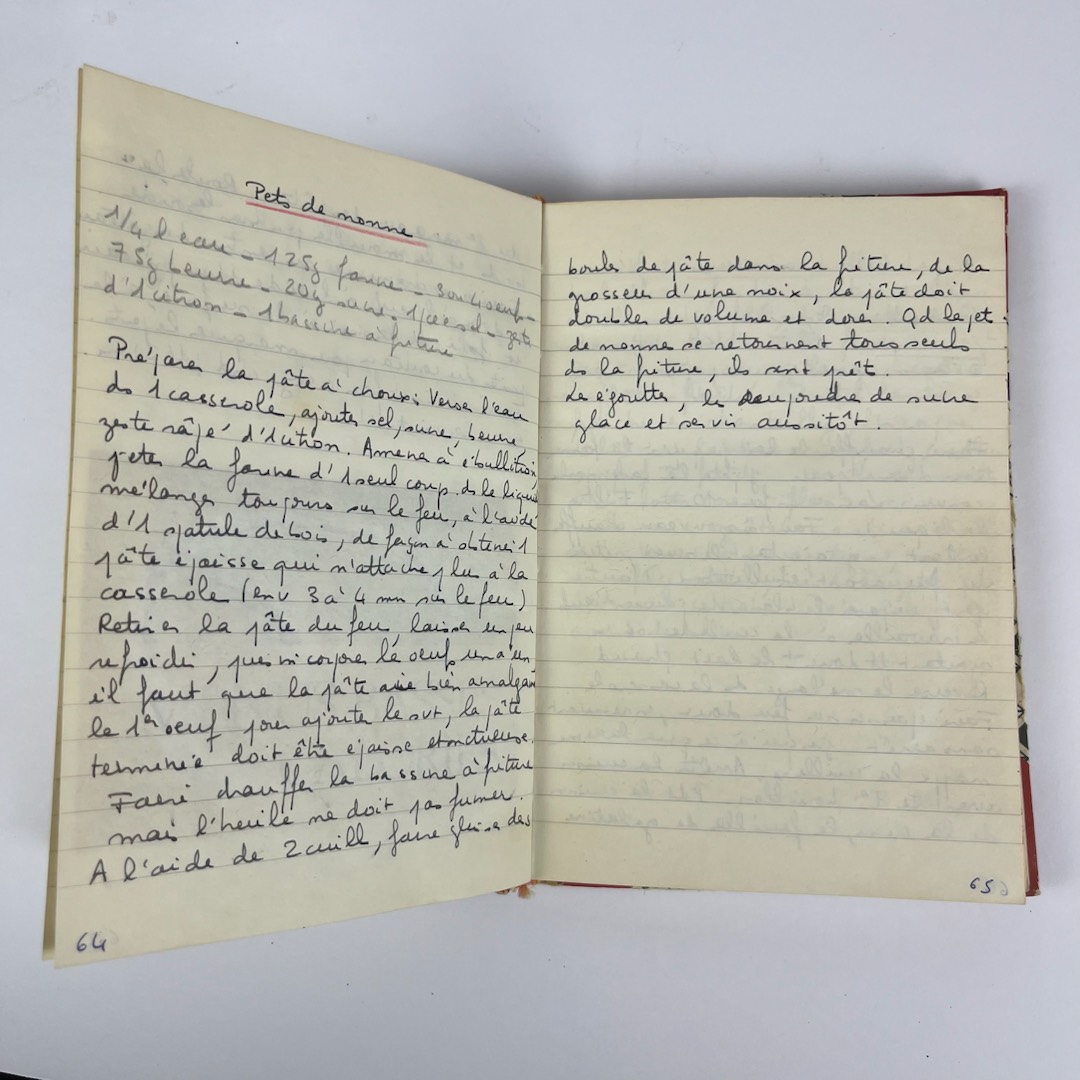 Pets de nonne
1/4 l eau - 125g farine - 3 ou 4 oeufs -
75g beurre - 20g sucre, 1 pce sel - zeste
d'1 citron - 1 bassine à friture
Préparer la pâte à choux: Verser l'eau
ds 1 casserole, ajouter sel, sucre, beurre,
zeste râpé d'1 citron. Amener à ébullition,
jeter la farine d'1 seul coup ds le liquide
mélanger toujours sur le feu, à l'aide
d'1 spatule de bois, de façon à obtenir 1
pâte épaisse qui n'attache plus à la
casserole (env 3 à 4 mn sur le feu)
Retirer la pâte du feu, laisser un peu
refroidir, puis incorporer les oeufs un à un,
il faut que la pâte aie bien amalgamé
le 1er oeuf pour ajouter le svt, la pâte
terminée doit être épaisse et onctueuse.
Faire chauffer la bassine à friture
mais l'huile ne doit pas fumer.
A l'aide de 2 cuill, faire glisser des
64
boules de pâte dans la friture, de la
grosseur d'une noix, la pâte doit
doubler de volume et dorer. Qd les pets
de nonne se retournent tous seuls
ds la friture, ils sont prêt.
Les égoutter, les saupoudrer de sucre
glace et servir aussitôt.
65